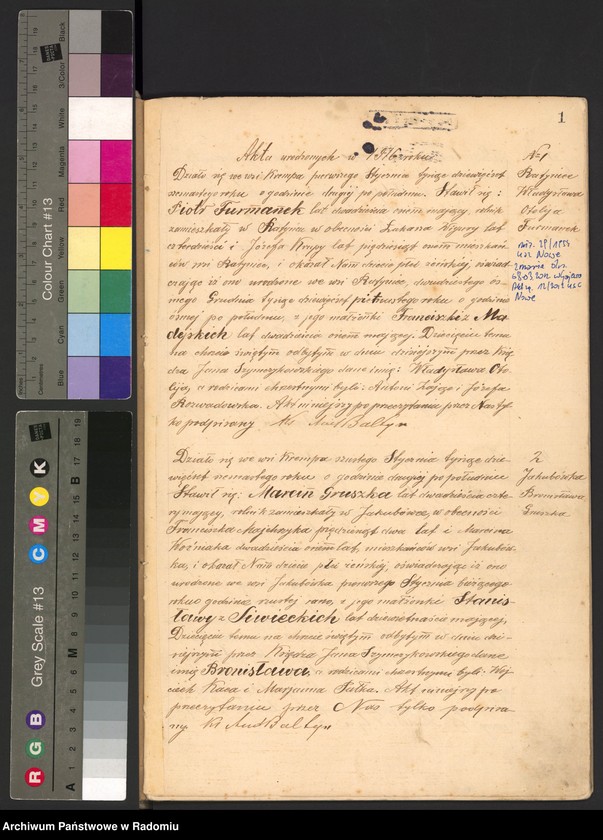 1
Akta urodzonych w 1916 roku
Nr 1
Ratyniec
Władysława
Otolja
Furmanek
Działo się we wsi Krempa pierwszego Stycznia tysiąc dziewięćset
szesnastego roku o godzinie drugiej po południu. Stawił się:
Piotr Furmanek lat dwadzieścia osiem mający, rolnik
zamieszkały w Ratyńcu w obecności Łukasza lat
czterdzieści i Józefa Krupy lat pięćdziesiąt osiem mieszkań-
ców wsi Ratyniec, i okazał Nam dziecię płci żeńskiej, oświad-
czając iż ono urodzone we wsi Ratyniec, dwudziestego ós-
mego Grudnia tysiąc dziewięćset piętnastego roku o godzinie
ósmej po południu, z jego małżonki Franciszki z Ma-
dejskich lat dwadzieścia osiem mającej. Dziecięciu temu
na chrzcie świętym odbytym w dniu dzisiejszym przez Księ-
dza Jana Szymczykowskiego dane imię: Władysława Oto-
lja, a rodzicami chrzestnymi byli: Antoni Zając i Józefa
Rozwadowska. Akt niniejszy po przeczytaniu przez Nas tyl-
ko podpisany Ks.
USC Nowe
zmarła dn.
Akt zg.
USC
Nowe
2
Jakubówka
Bronisława
Gruszka
Działo się we wsi Krempa szóstego Stycznia tysiąc dzie-
więćset szesnastego roku o godzinie drugiej po południu
Stawił się: Marcin Gruszka lat dwadzieścia czte-
ry mający, rolnik zamieszkały w Jakubówce, w obecności
Franciszka Majchrzyka pięćdziesiąt dwa lat i Marcina
Woźniaka dwadzieścia osiem lat, mieszkańców wsi Jakubów-
ka, i okazał Nam dziecię płci żeńskiej, oświadczając iż ono
urodzone we wsi Jakubówka pierwszego Stycznia bieżącego
roku godzinie szóstej rano, z jego małżonki Stanis-
ławy z Siwieckich lat dziewiętnaście mającej,
Dziecięciu temu na chrzcie świętym odbytym w dniu dzi-
siejszym przez Księdza Jana Szymczykowskiego dane
imię Bronisława a rodzicami chrzestnymi byli: Woj-
ciech Kaca i Marjanna Pałka. Akt niniejszy po
przeczytaniu przez Nas tylko podpisa-
ny Ks.
Colour Chart #13
Black
3/Color
White
Magenta
Red
Yellow
Green
Cyan
Blue
Inches
Centimetres
Grey Scale #13
R G B
C M Y K
A 1 2 3 4 5 6 M 8 9 10 11 12 13 14 15 B 17 18 19
Archiwum Państwowe w Radomiu